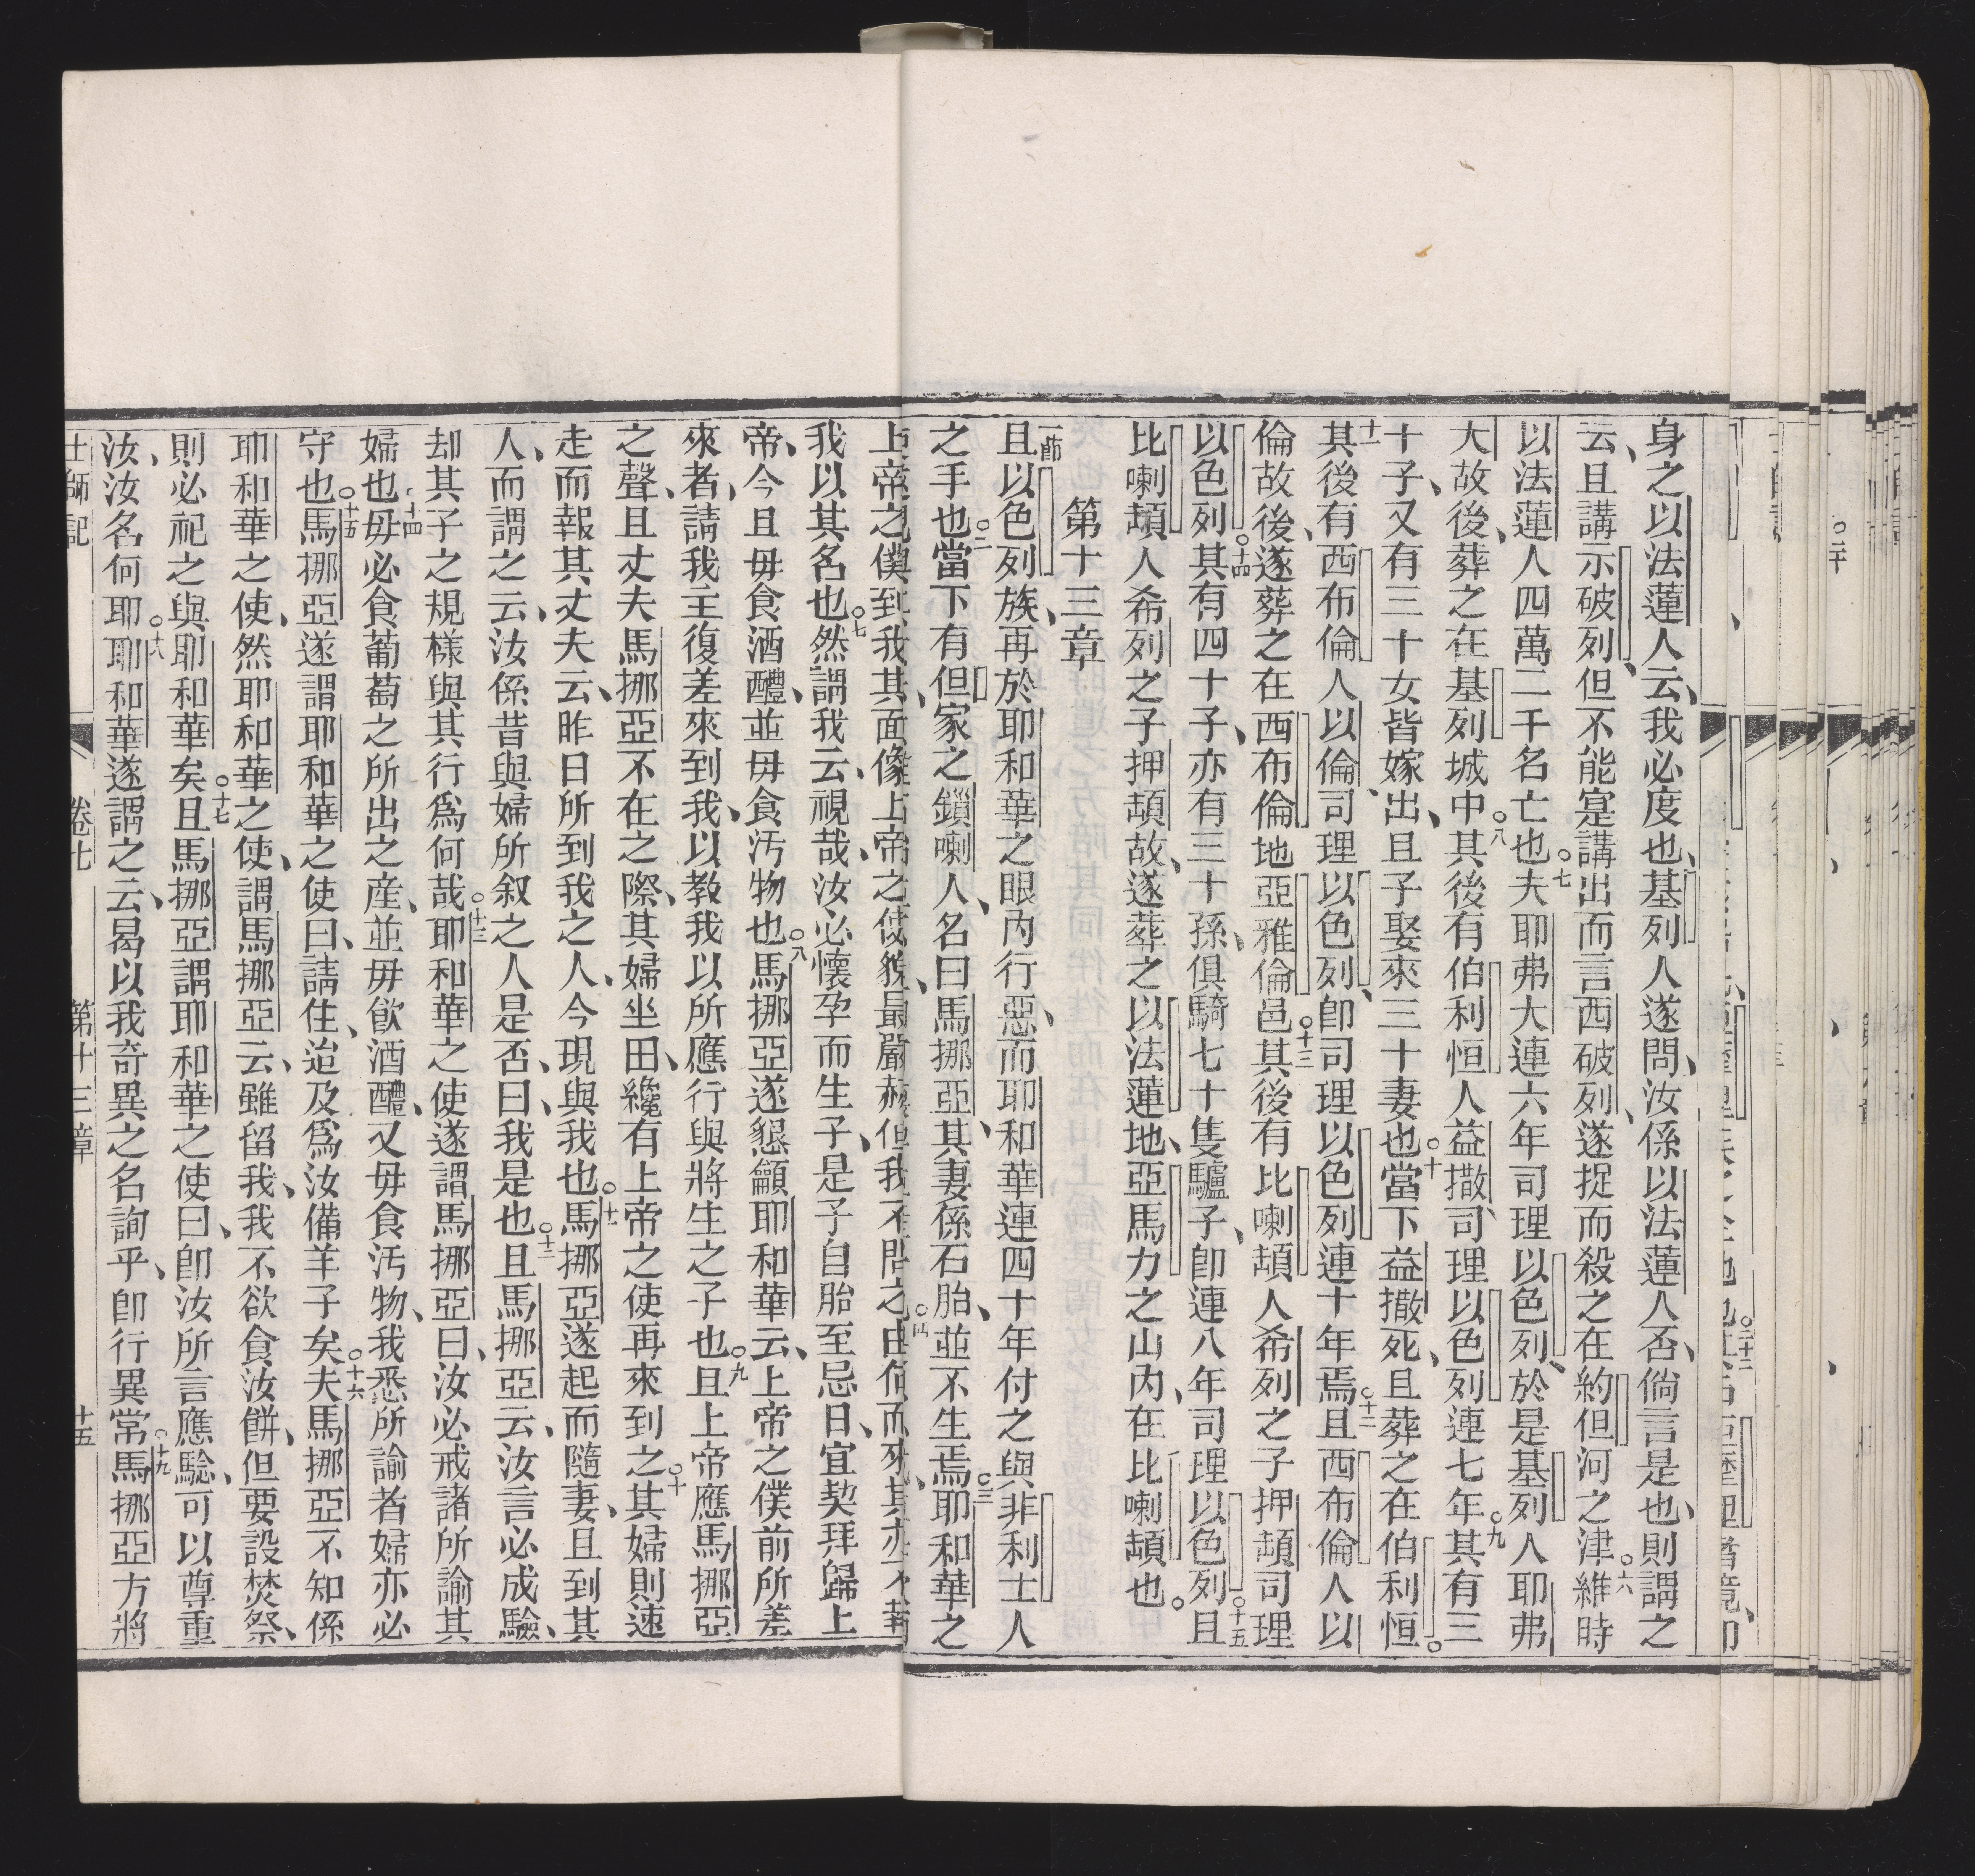 身之以法蓮人云、我必度也、基列人遂問、汝係以法蓮人否、倘言是也、則謂之
云、且講示破列、但不能寔講出而言西破列、遂捉而殺之在約但河之津、維時
以法蓮人四萬二千名亡也。七夫耶弗大連六年司理以色列、於是基列人耶弗
大故後、葬之在基列城中。八其後有伯利恒人益撒、司理以色列連七年。九其有三
十子、又有三十女皆嫁出、且子娶來三十妻也。十當下益撒死、且葬之在伯利恒。
十一其後有西布倫人以倫司理以色列、卽司理以色列連十年焉。十二且西布倫人以
倫故後、遂葬之在西布倫地亞雅倫邑。十三其後有比喇頡人希列之子押頡司理
以色列。十四其有四十子、亦有三十孫、俱騎七十隻驢子、卽連八年司理以色列。十五且
比喇頡人希列之子押頡故、遂葬之以法蓮地、亞馬力之山內、在比喇頡也。
第十三章
一節且以色列族、再於耶和華之眼內行惡、而耶和華連四十年付之與非利士人
之手也。二當下有但家之鎖喇人、名曰馬挪亞、其妻係石胎、並不生焉。三耶和華之
我以其名也。七然謂我云、視哉、汝必懷孕而生子、是子自胎至忌日、宜契拜歸上
帝、今且毋食酒醴、並毋食汚物也。八馬挪亞遂懇籲耶和華云、上帝之僕前所差
來者、請我主復差來到我、以教我以所應行與將生之子也。九且上帝應馬挪亞
之聲、且丈夫馬挪亞不在之際、其婦坐田、纔有上帝之使再來到之。十其婦則速
走而報其丈夫云、昨日所到我之人、今現與我也。十一馬挪亞遂起而隨妻、且到其
人、而謂之云、汝係昔與婦所叙之人是否、曰、我是也。十二且馬挪亞云、汝言必成驗、
却其子之規樣與其行爲何哉。十三耶和華之使遂謂馬挪亞曰、汝必戒諸所諭其
婦也。十四毋必食葡萄之所出之産、並毋飲酒醴、又毋食汚物、我悉所諭者婦亦必
守也。十五馬挪亞遂謂耶和華之使曰、請住、迨及爲汝備羊子矣。十六夫馬挪亞不知係
耶和華之使、然耶和華之使、謂馬挪亞云、雖留我、我不欲食汝餅、但要設焚祭、
則必祀之與耶和華矣。十七且馬挪亞謂耶和華之使曰、卽汝所言應騐、可以尊重
汝、汝名何耶。十八耶和華遂謂之云、曷以我奇異之名詢乎、卽行異常。十九馬挪亞方將
士師記 卷七 第十三章 十五